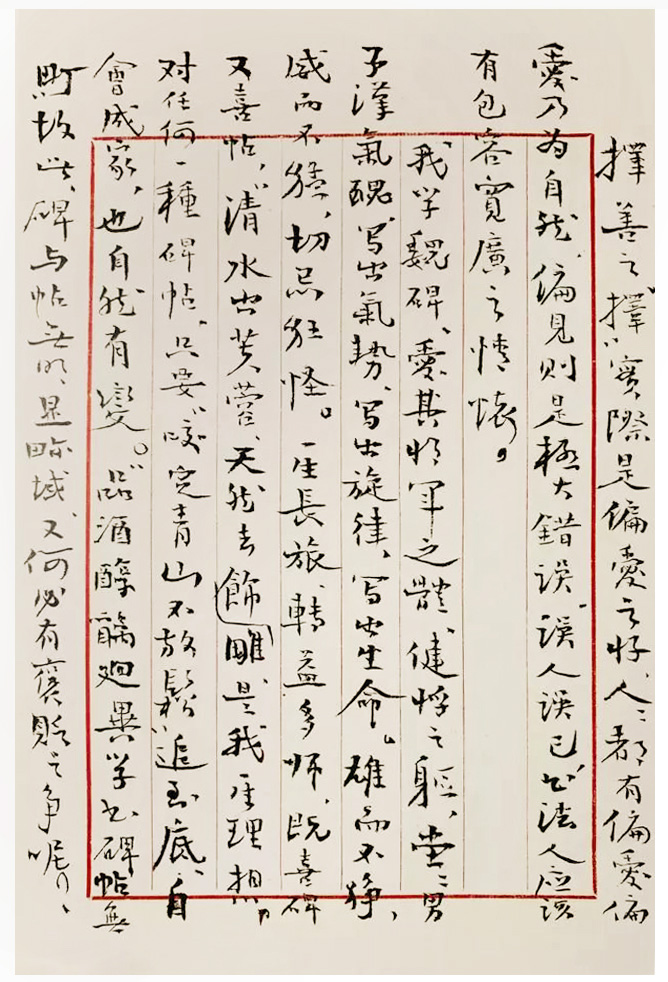 擇善之擇”實際是偏愛之好、人人都有偏愛偏
愛乃為自然、偏見則是極大錯误、误人误己、书法人应该
有包容寬廣之情懷。
我学魏碑、愛其将军之體、健悍之軀、堂堂男
子漢氣魄、写出氣勢、写出旋律、写出生命。雄而不狰，
威而不猛，切忌狂怪。一生長旅、轉益多师，既喜碑
又喜帖，“清水出芙蓉、天然去雕飾”是我一生理想，
对任何一種碑帖、只要“咬定青山不放鬆”追到底、自
會成家，也自然有變。品酒醇醨迥異学书碑帖無
町故此、碑与帖无明显畛域、又何必有褒貶之争呢？、